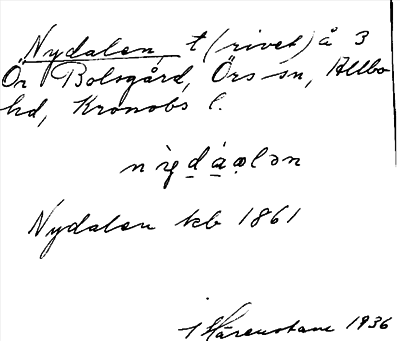 Nydalen, t (rivet) å 3
Ör Bolsgård, Örs sn, Allbo
hd, Kronobs l.
Nydalen kb 1861
1936